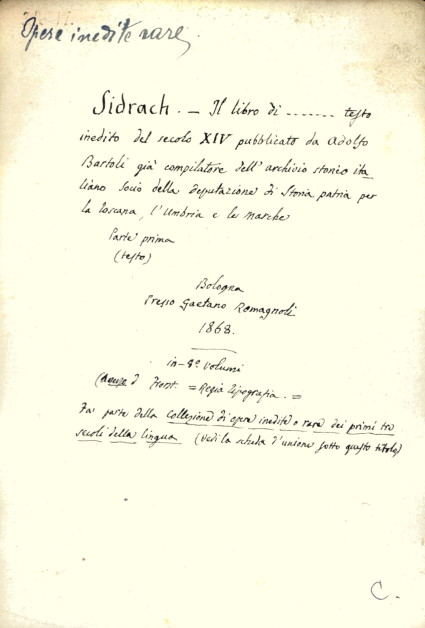 Opere inedite rare
Sidrach. — Il libro di ....... testo
inedito del secolo XIV pubblicato da Adolfo
Bartoli già compilatore dell'archivio storico ita
liano socio della deputazione di Storia patria per
la Toscana, l'Umbria e le Marche
Parte prima
(testo)
Bologna
Presso Gaetano Romagnoli
1868.
in-8° volumi
d Front. = Regia Tipografia. =
Fa parte della collezione di opere inedite o rare dei primi tre
secoli della lingua (Vedi la scheda d'unione sotto questo titolo)
C.